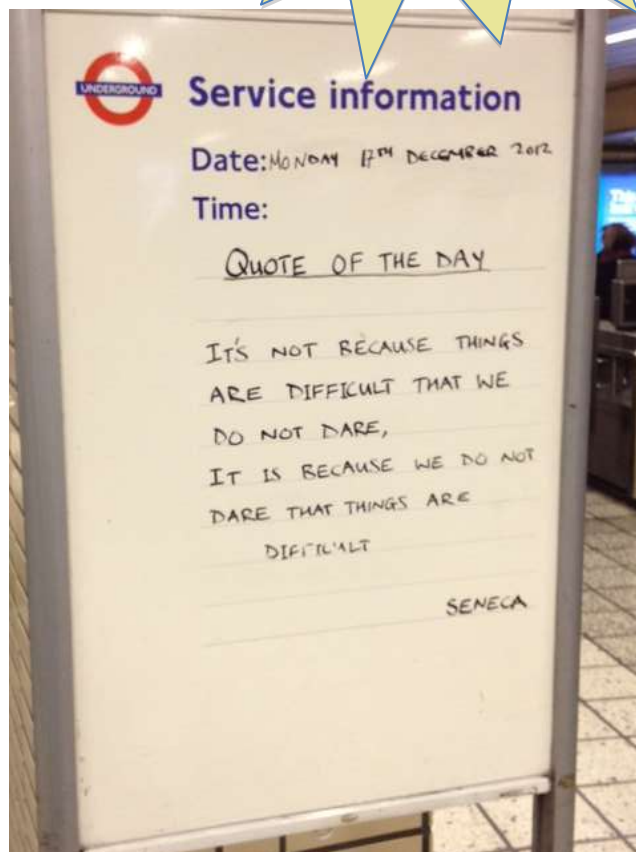 UNDERGROUND
Service information
Date: MONDAY 17TH DECEMBER 2012
Time:
QUOTE OF THE DAY
IT'S NOT BECAUSE THINGS
ARE DIFFICULT THAT WE
DO NOT DARE,
IT IS BECAUSE WE DO NOT
DARE THAT THINGS ARE
DIFFICULT
SENECA